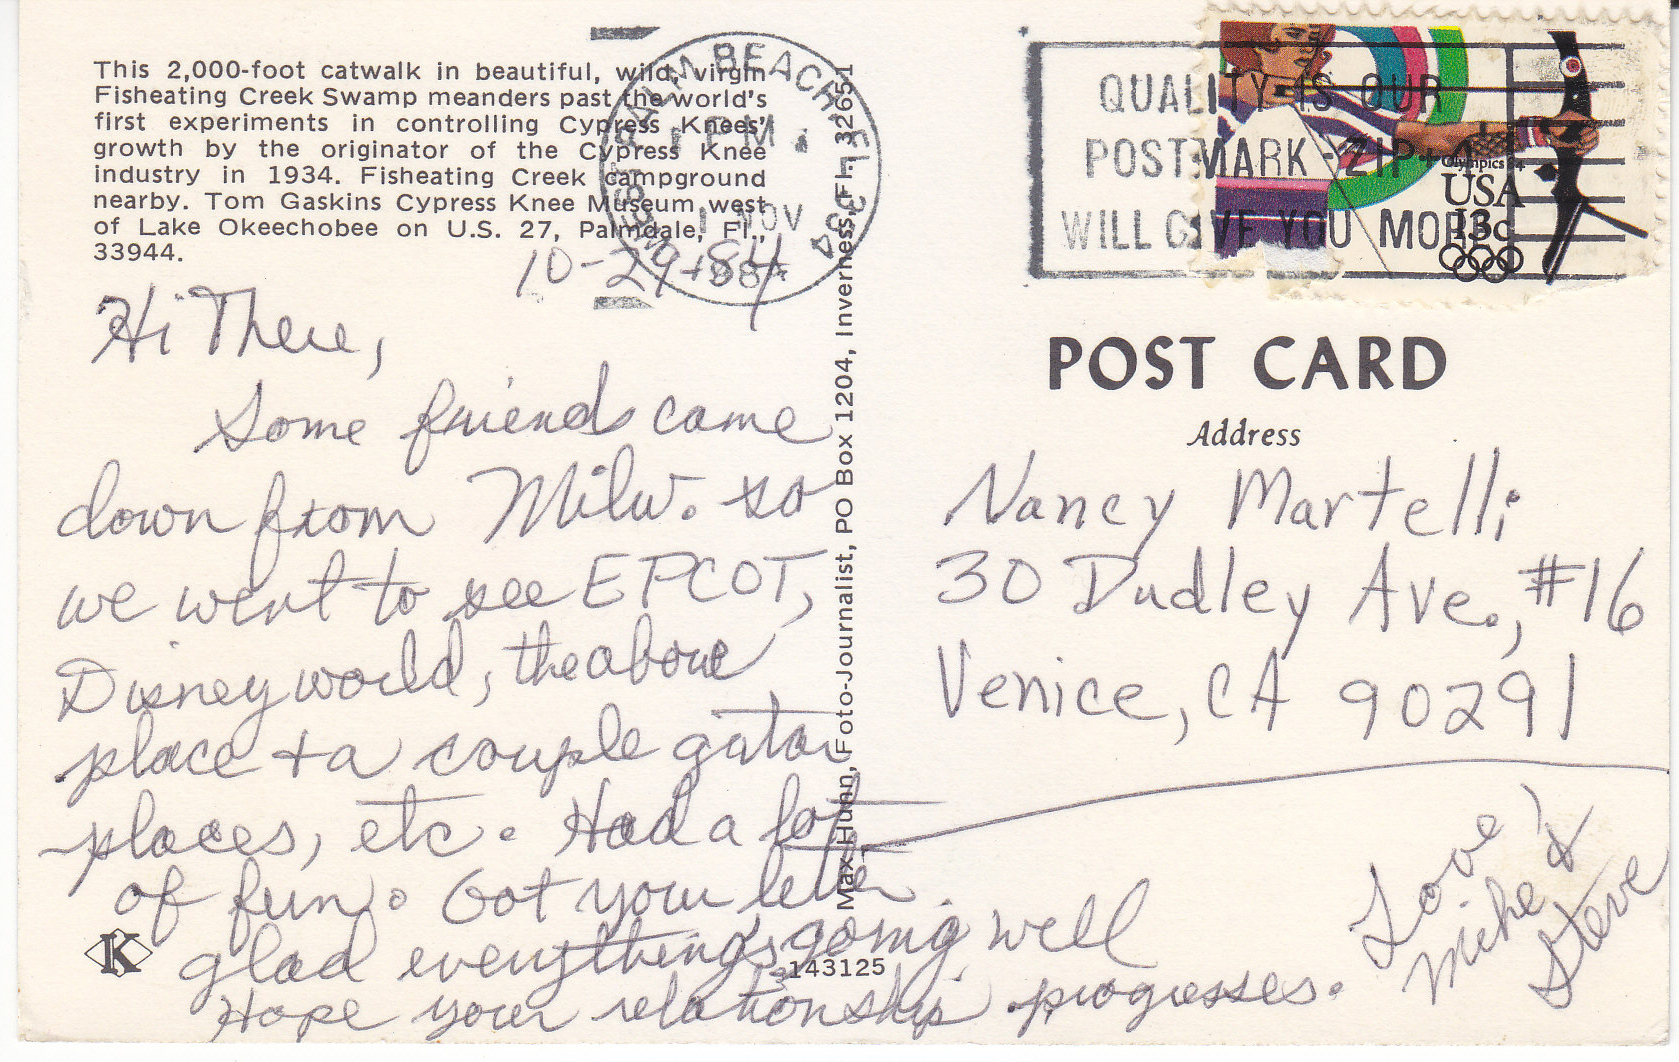 This 2,000-foot catwalk in beautiful, wild, virgin
Fisheating Creek Swamp meanders past the world's
first experiments in controlling Cypress Knees'
growth by the originator of the Cypress Knee
industry in 1934. Fisheating Creek campground
nearby. Tom Gaskins Cypress Knee Museum, west
of Lake Okeechobee on U.S. 27, Palmdale, Fl.,
33944.
10-29-84
Hi There,
Some friends came
down from Milw. so
we went to see EPCOT,
Disneyworld, the above
place + a couple gator
places, etc. Had a lot
of fun. Got your letter
glad everything's going well
Hope your relationship progresses.
Love,
Mike &
Steve
K
143125
Max Hunn, Foto-Journalist, PO Box 1204, Inverness, Fl. 32651
WEST PALM BEACH, FL 334
PM
1 NOV
1984
QUALITY IS OUR
POSTMARK - ZIP+4
WILL GIVE YOU MORE
Olympics 84
USA
13c
POST CARD
Address
Nancy Martelli
30 Dudley Ave., #16
Venice, CA 90291